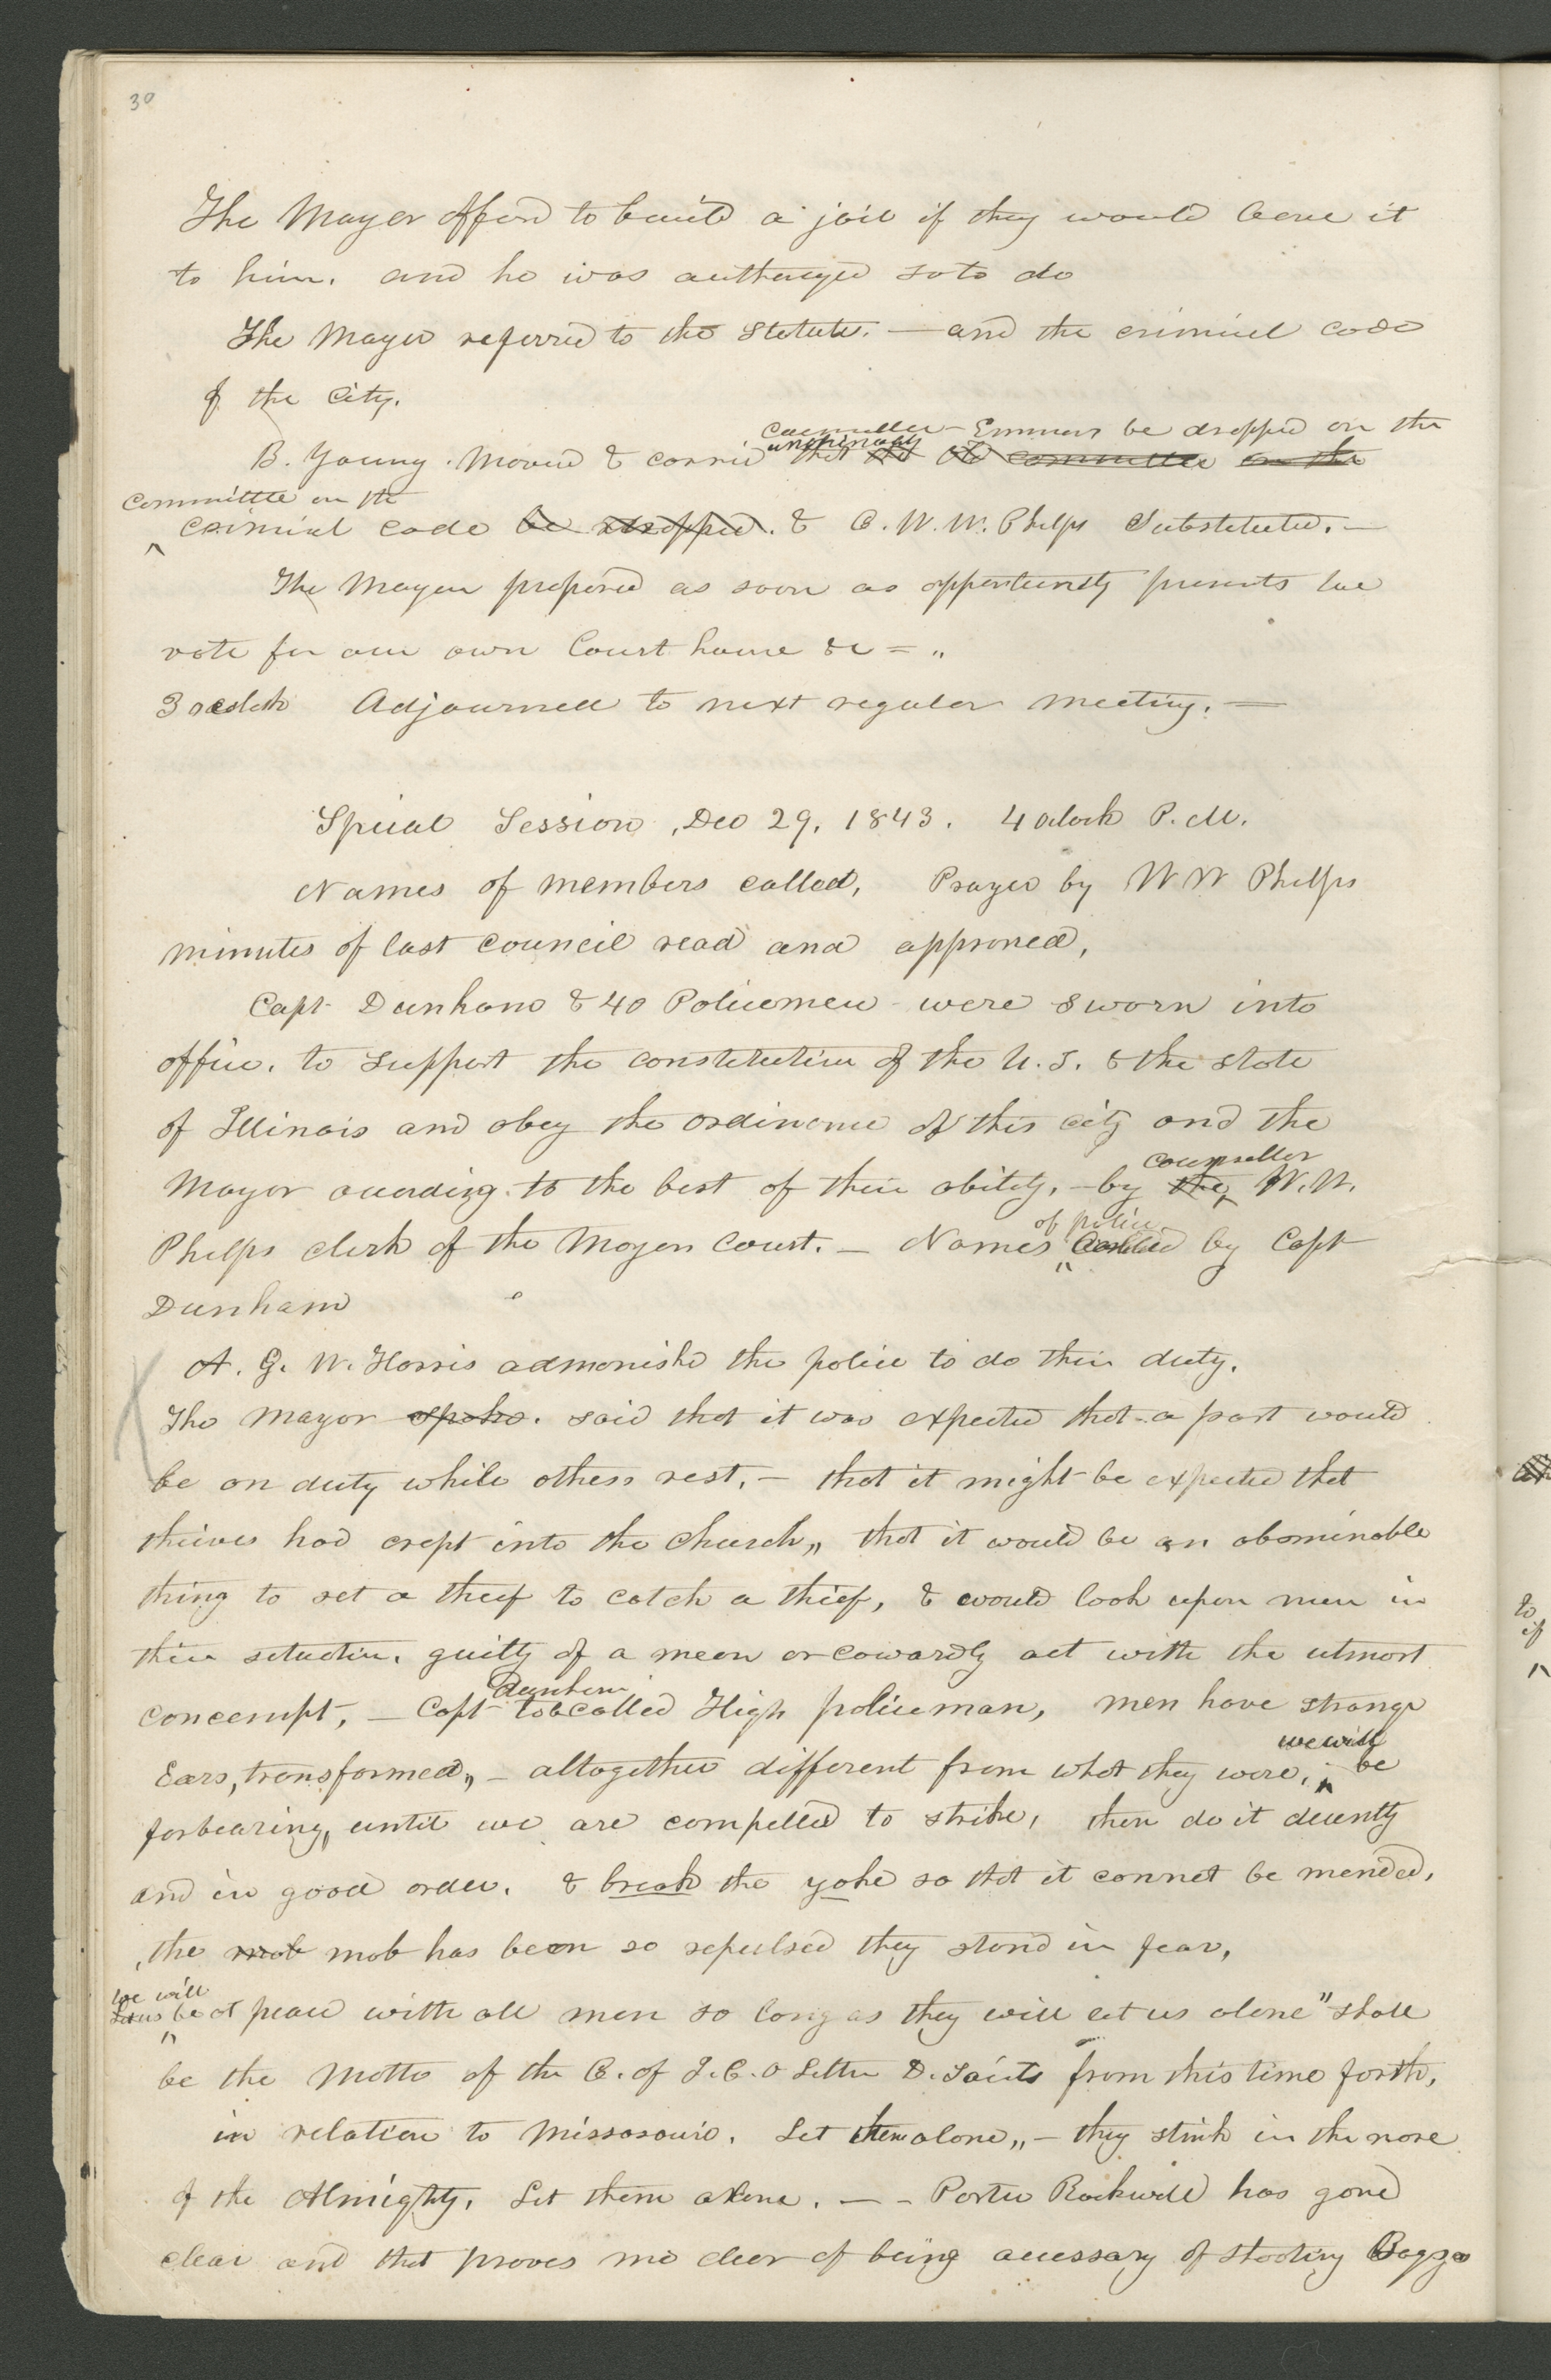 30
The Mayor offerd to build a jail if they would leave it
to him. and he was authorized so to do
The Mayor referred to the statute. — and the criminal code
of the city.
councillor — Emmons be dropped on the
B. Young. Moved & carrid unanimously that the committee on the
committe on the
criminal code be dropped. & C. W. W. Phelps Substituted. —
The Mayor proposed as soon as opportunity presents we
vote for our own Court house &c = "
3 oclock Adjourned to next regular meeting. —
Special Session, Dec 29. 1843. 4 oclock P. M.
Names of members called, Prayer by W W Phelps
minutes of last council read and approved,
Capt Dunham & 40 Policemen were sworn into
office. to support the constitution of the U. S. & the state
of Illinois and obey the ordinance of this city and the
counseller
Mayor according to the best of their ability, — by the W. W.
of police
Phelps clerk of the Mayors Court. — Names called by Capt
Dunham
A. G. W. Harris admonishd the police to do their duty.
The Mayor spoke. said that it was expected that a part would
be on duty while others rest. — that it might be expected that
thieves had crept into the church,, that it would be an abominable
thing to set a thief to catch a thief, & would look upon men in
their situation. guilty of a mean or cowardly act with the utmost
Dunham
concempt, — Capt to be called High policeman, men have strange
we will
Ears, transformed,, — altogether different from what they were, be
forbearing, until we are compelled to strike, then do it decently
and in good order. & break the yoke so that it cannot be mended,
the mob mob has been so repulsed they stand in fear,
we will
Let us be at peace with all men so long as they will let us alone" shall
be the Motto of the C. of J. C. o Latter D. Saints from this time forth,
in relation to Missosouri. Let them alone,, — they stink in the nose
of the Almighty. Let them alone. — — Porter Rockwell has gone
clear and that proves me clear of being accessary of shooting Boggs
to
if